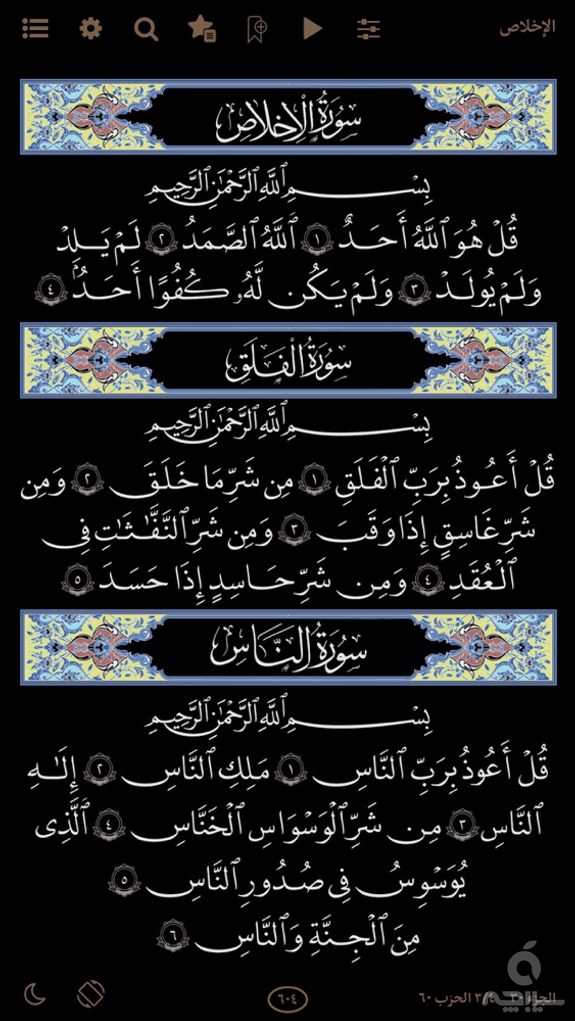 الإخلاص
سُورَةُ الْإِخْلَاصِ
بِسْمِ ٱللَّهِ ٱلرَّحْمَٰنِ ٱلرَّحِيمِ
قُلْ هُوَ ٱللَّهُ أَحَدٌ ١ ٱللَّهُ ٱلصَّمَدُ ٢ لَمْ يَلِدْ
وَلَمْ يُولَدْ ٣ وَلَمْ يَكُن لَّهُۥ كُفُوًا أَحَدٌۢ ٤
سُورَةُ الْفَلَقِ
بِسْمِ ٱللَّهِ ٱلرَّحْمَٰنِ ٱلرَّحِيمِ
قُلْ أَعُوذُ بِرَبِّ ٱلْفَلَقِ ١ مِن شَرِّ مَا خَلَقَ ٢ وَمِن
شَرِّ غَاسِقٍ إِذَا وَقَبَ ٣ وَمِن شَرِّ ٱلنَّفَّٰثَٰتِ فِى
ٱلْعُقَدِ ٤ وَمِن شَرِّ حَاسِدٍ إِذَا حَسَدَ ٥
سُورَةُ النَّاسِ
بِسْمِ ٱللَّهِ ٱلرَّحْمَٰنِ ٱلرَّحِيمِ
قُلْ أَعُوذُ بِرَبِّ ٱلنَّاسِ ١ مَلِكِ ٱلنَّاسِ ٢ إِلَٰهِ
ٱلنَّاسِ ٣ مِن شَرِّ ٱلْوَسْوَاسِ ٱلْخَنَّاسِ ٤ ٱلَّذِى
يُوَسْوِسُ فِى صُدُورِ ٱلنَّاسِ ٥
مِنَ ٱلْجِنَّةِ وَٱلنَّاسِ ٦
الجزء ٣٠ ٣/٤ الحزب ٦٠
٦٠٤
سیباچه